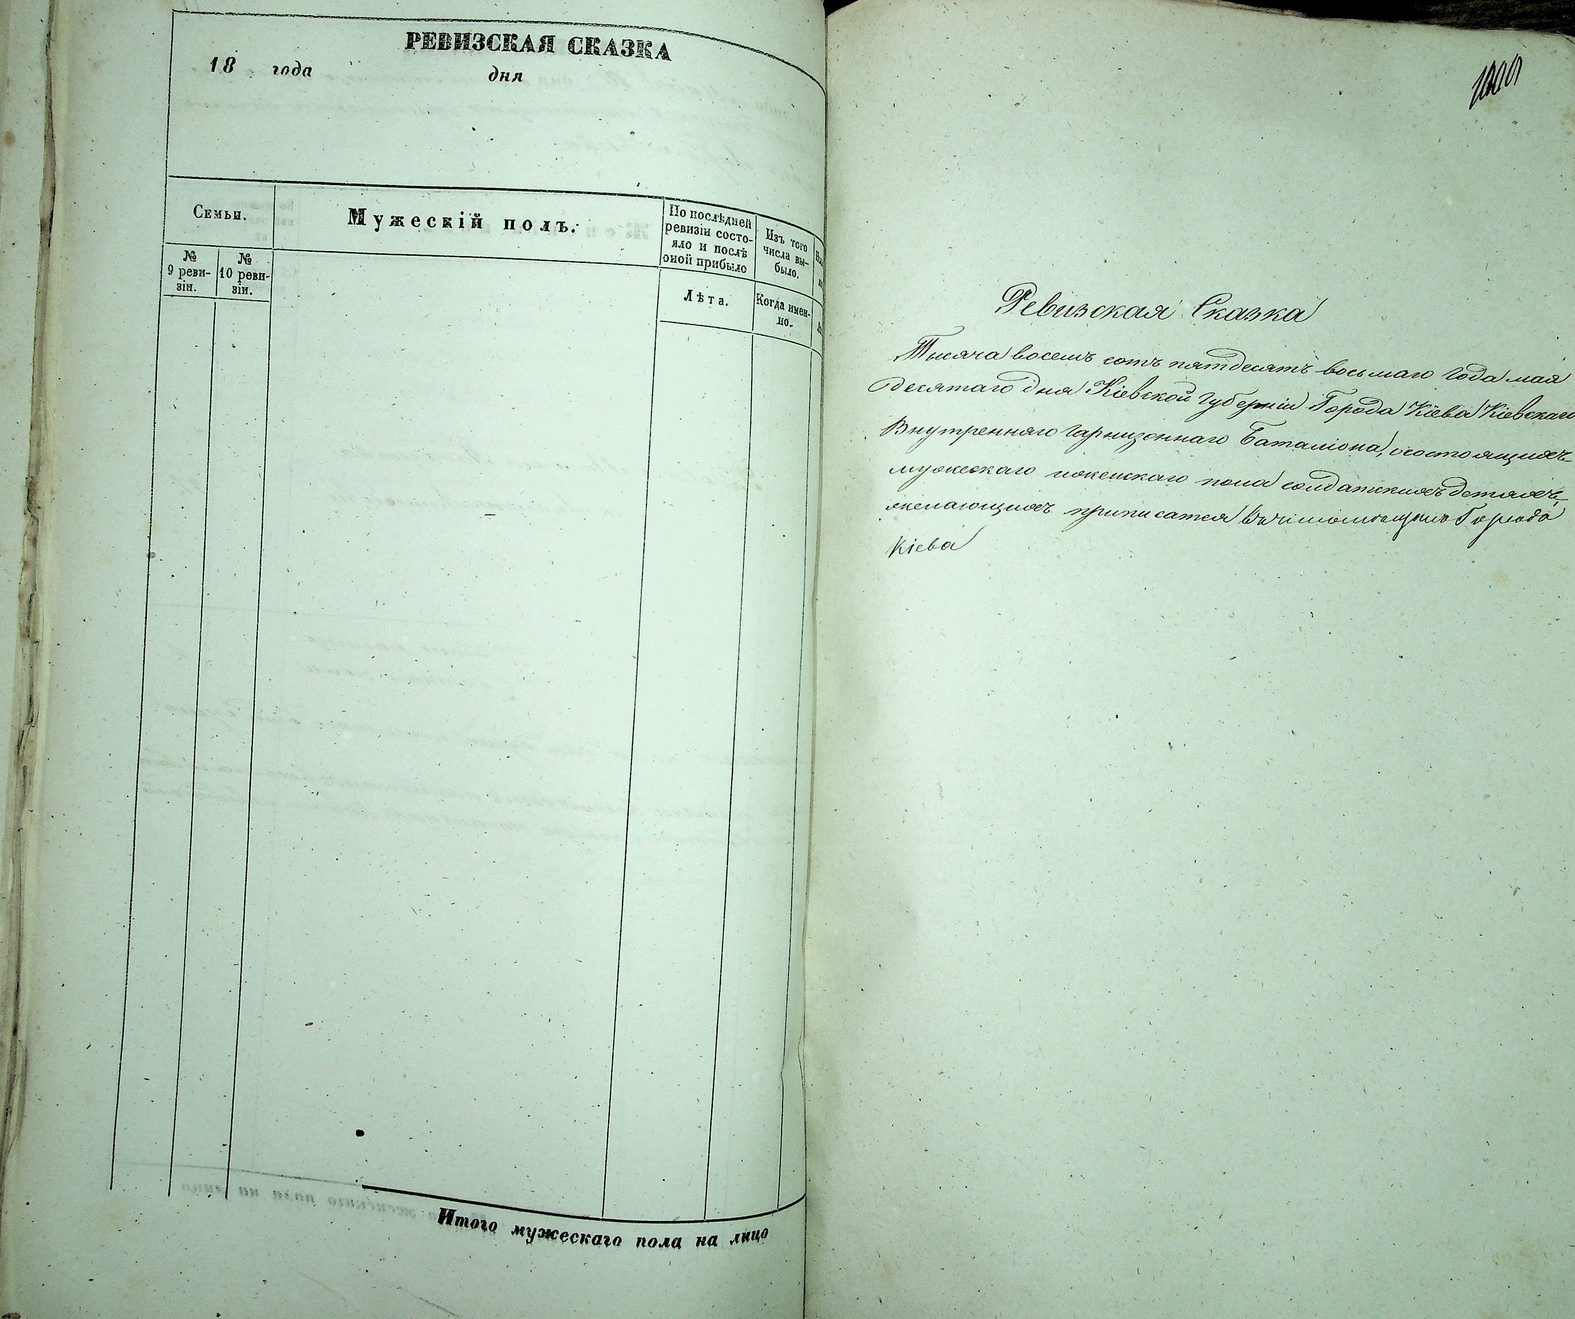 РЕВИЗСКАЯ СКАЗКА
18 года дня
Семьи.
№ 9 реви-
зіи.
№ 10 реви-
зіи.
Мужескій полъ.
По послѣдней
ревизіи состо-
яло и послѣ
оной прибыло
Лѣта.
Изъ того
числа вы-
было,
Когда имен-
но.
Итого мужескаго пола на лицо
Ревизская Сказка
Тысяча восемъ сотъ пятдесятъ восьмаго года мая
десятаго дня Кіевской губерніи Города Кіева Кіевскаго
Внутренняго гарнизоннаго Баталіона, осостоящихъ
мужескаго иженскаго пола солдатскихъ детяхъ,
желающихъ приписатся Города
Кіева